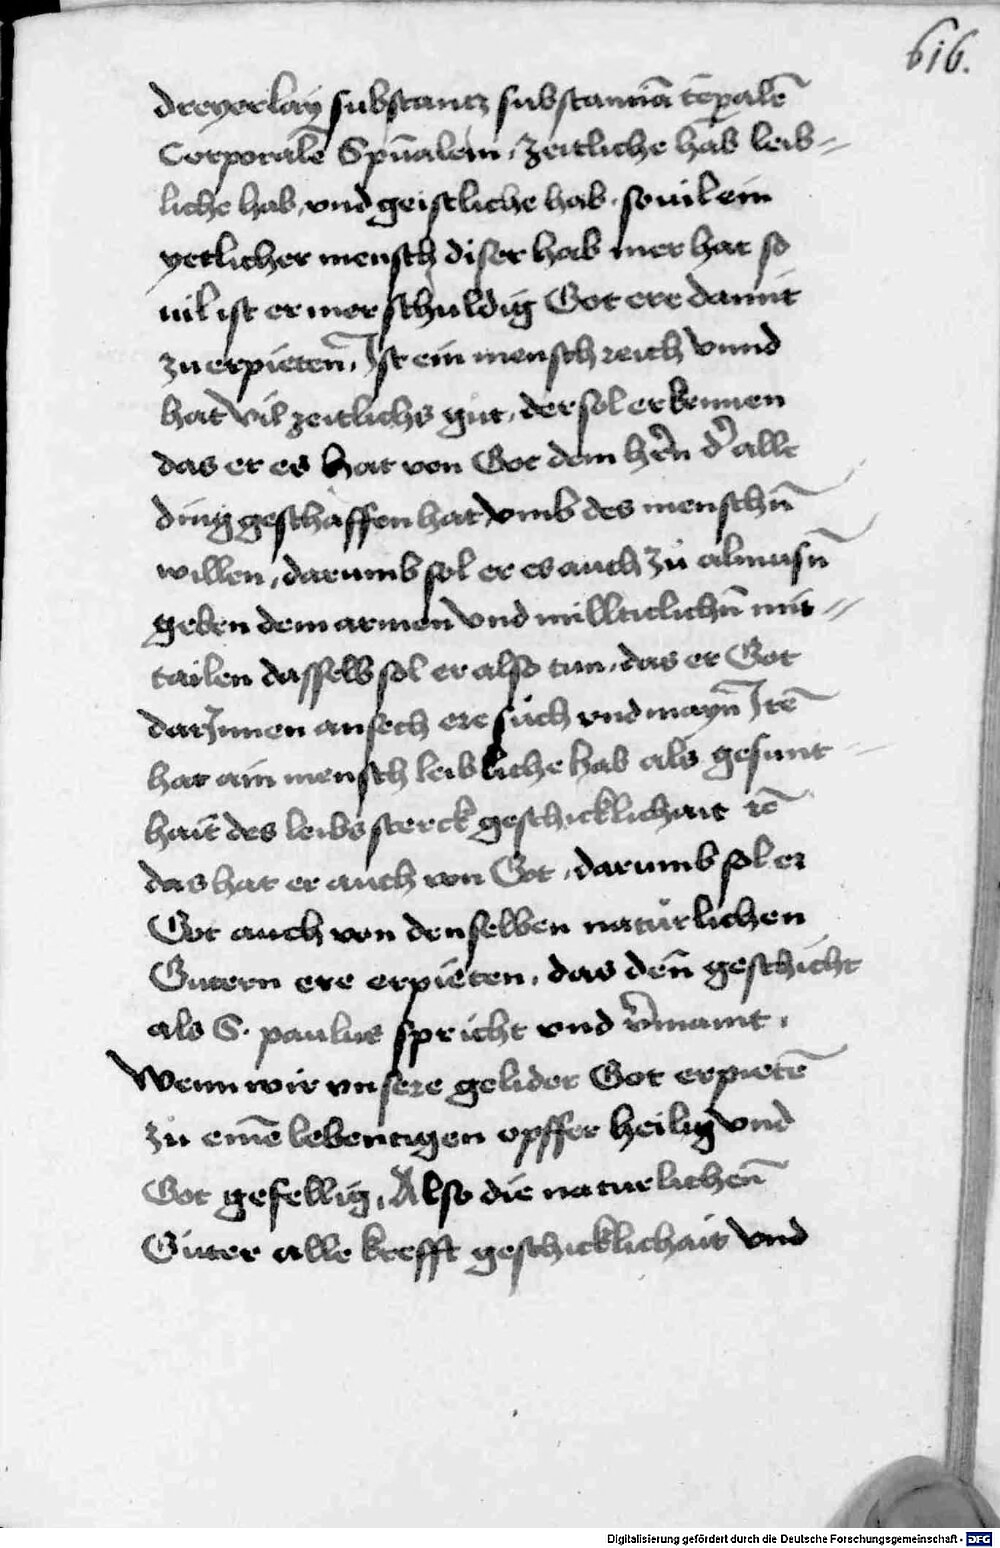 616.
dreyerlay substantz substantiā tēpalē
Corporalē Spūalem, zeitliche hab leib=
liche hab, vnd geistliche hab. souil ein
yetlicher mensch diser hab mer hat so
uil ist er mer schuldig Got ere damit
zu erpieten̄, Ist ein mensch reich vnnd
hat vil zeitlichs gut, der sol erkennen
das er es hat von Got dem hērn d̄ alle
ding geschaffen hat vmb des menschn̄
willen, darumb sol er es auch zů almusn̄
geben dem armen vnd millticlichn̄ mit=
tailen dasselb sol er also tun, das er Got
darInnen ansech ere such vnd mayn̄ Itē
hat ain mensch leibliche hab als gesunt
hait des leibs sterck geschicklichait ꝛc̄
das hat er auch von Got, darumb sol er
Got auch von denselben natürlichen
Gutern ere erpieten, das den̄ geschicht
als S. paulus spricht vnd v̄mant,
Wenn wir vnsere gelider Got erpietē
zů einē lebentigen opffer heilig vnd
Got gefellig, Also die naturlichen̄
Güter alle krefft geschicklichait vnd
Digitalisierung gefördert durch die Deutsche Forschungsgemeinschaft - DFG